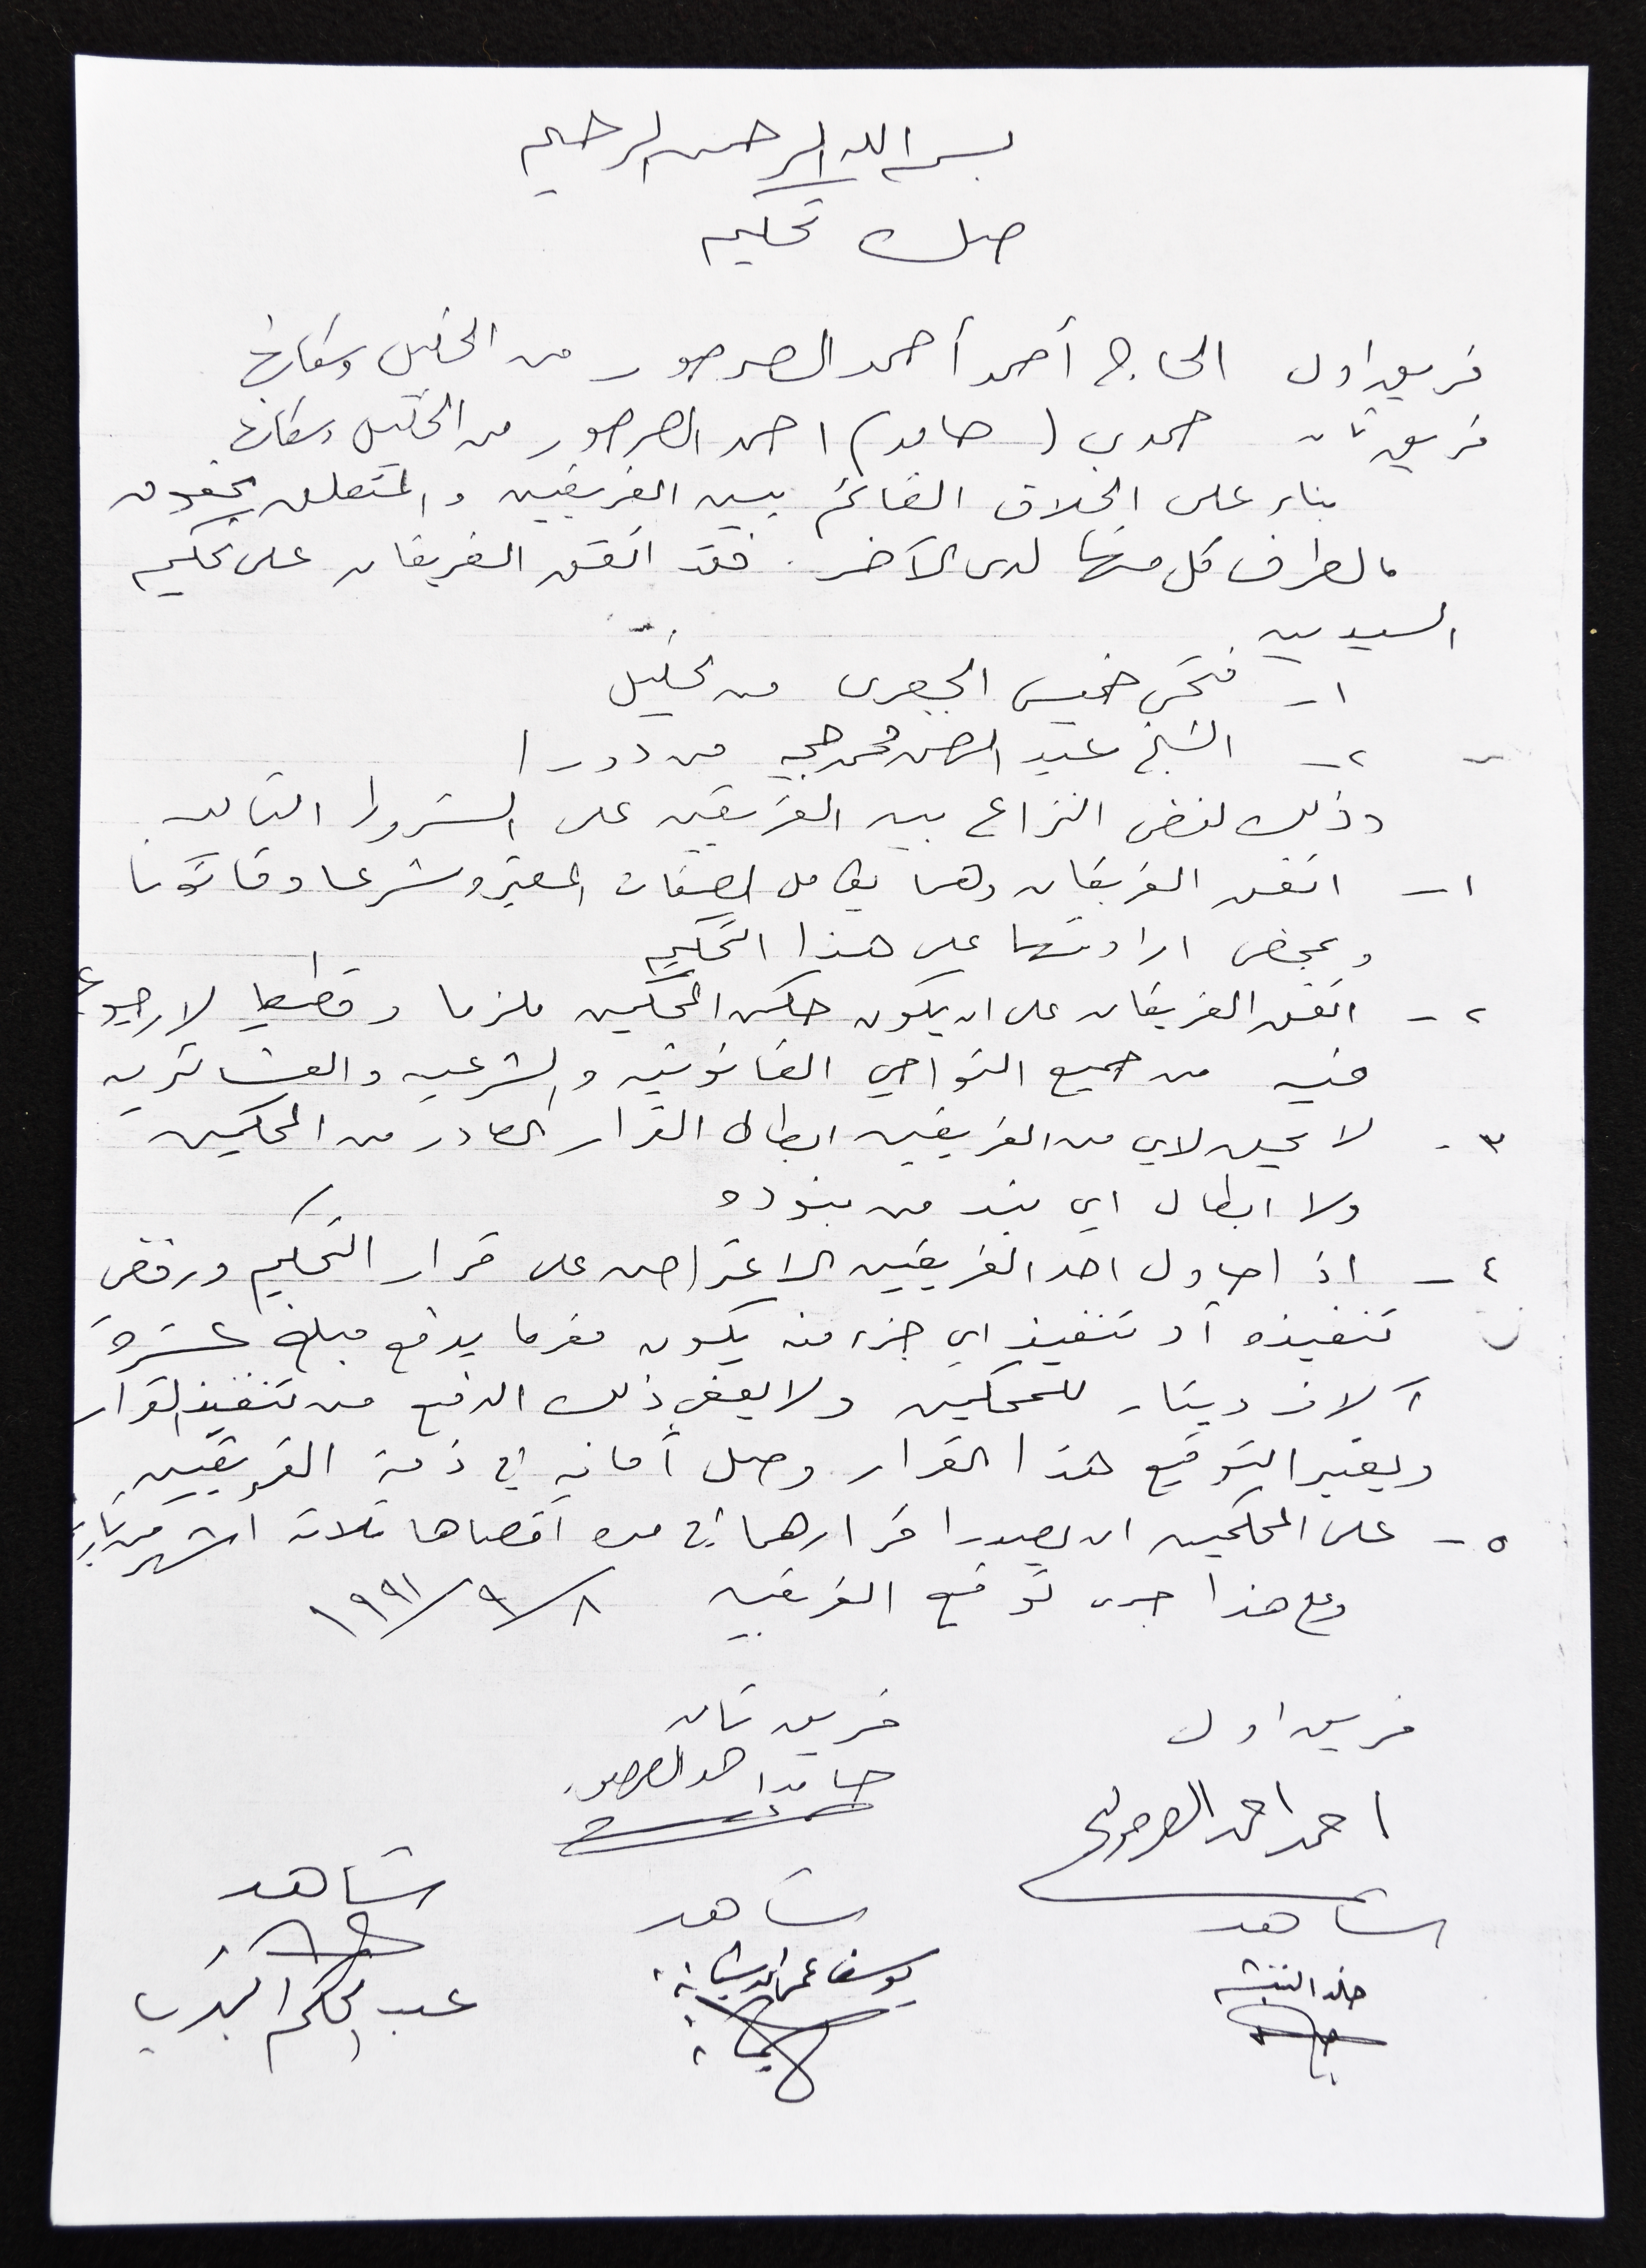 بسم الله الرحمن الرحيم
صك تحكيم
فريق اول الحاج أحمد أحمد الصرصور من الخليل وسكانها
فريق ثان حمدي (حامد) احمد الصرصور من الخليل وسكانها
بناء على الخلاف القائم بين الفريقين والمتعلق بحقوق
مالطرف كل منهما لدى الآخر. فقد اتفق الفريقان على تحكيم
السيدين
١ - فتحي خميس الجعبري من الخليل
٢ - الشيخ عبد الرحمن محمد حجه من دورا
وذلك لفض النزاع بين الفريقين على الشروط التاليه
١ - اتفق الفريقان وهما بكامل الصفات المعتبره شرعا وقانونا
وبمحض ارادتهما على هذا التحكيم
٢ - اتفق الفريقان على ان يكون حكم المحكمين ملزما وقطعيا لا رجوع
فيه من جميع النواحي القانونيه والشرعيه والعشائريه
٣ - لا يحق لاي من الفريقين ابطال القرار الصادر من المحكمين
ولا ابطال اي بند من بنوده
٤ - اذا حاول احد الفريقين الاعتراض على قرار التحكيم ورفض
تنفيذه أو تنفيذ اي جزء منه يكون مغرما بدفع مبلغ عشرة
آلاف دينار للمحكمين ولا يعفي ذلك الدفع من تنفيذ القرار
ويعتبر التوقيع هذا القرار وصل أمانه في ذمة الفريقين
٥ - على المحكمين ان يصدرا قرارهما في مده أقصاها ثلاثة اشهر من تاريخه
وعلى هذا جرى توقيع الفريقين ٨/٩/١٩٩١
فريق اول فريق ثان
احمد احمد الصرصور حامد احمد الصرصور
شاهد شاهد شاهد
خالد النتشه يوسف عمر عبد الحكم البدري